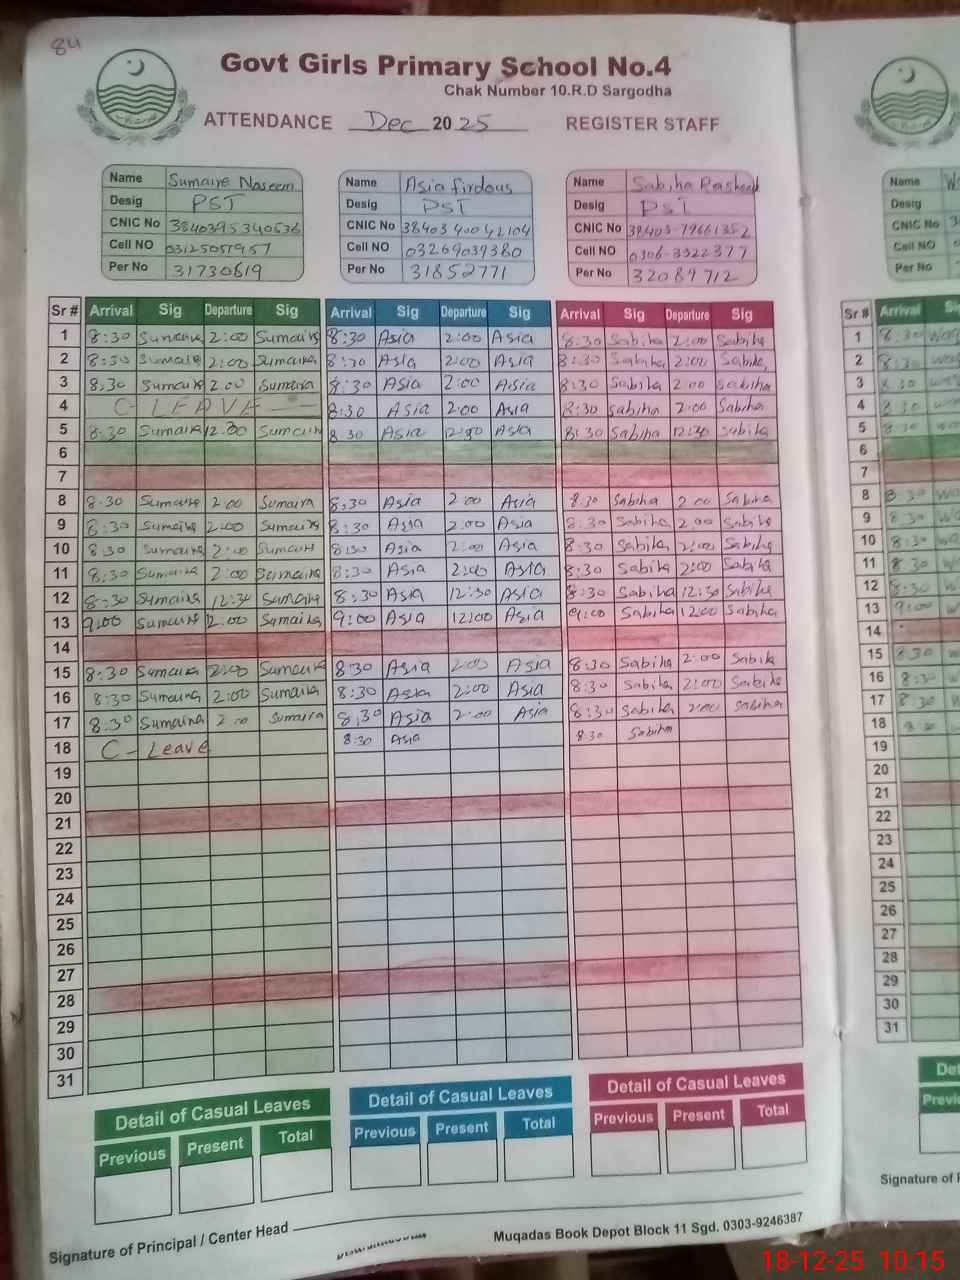 84
Govt Girls Primary School No.4
Chak Number 10.R.D Sargodha
ATTENDANCE Dec 2025 REGISTER STAFF
Name Sumaira Naseem Name Asia firdous Name Sabiha Rasheed Name
Desig PST Desig PST Desig PST Desig
CNIC No 3840395340536 CNIC No 3840340042104 CNIC No 38403-79661352 CNIC No
Cell NO 03125051957 Cell NO 03269039380 Cell NO 0306-3322377 Cell NO
Per No 31730619 Per No 31852771 Per No 32089712 Per No
Sr # Arrival Sig Departure Sig Arrival Sig Departure Sig Arrival Sig Departure Sig Sr # Arrival
1 8:30 Sumaira 2:00 Sumaira 8:30 Asia 2:00 Asia 8:30 Sabiha 2:00 Sabiha 1 8:30
2 8:30 Sumaira 2:00 Sumaira 8:30 Asia 2:00 Asia 8:30 Sabiha 2:00 Sabiha 2 8:30
3 8:30 Sumaira 2 00 Sumaira 8:30 Asia 2:00 Asia 8:30 Sabiha 2 00 Sabiha 3 8 30
4 C- LEAVE 8:30 Asia 2:00 Asia 8:30 Sabiha 2:00 Sabiha 4 8 30
5 8:30 Sumaira 12:30 Sumaira 8 30 Asia 12:30 Asia 8:30 Sabiha 12:30 Sabiha 5 8 30
6 6
7 7
8 8:30 Sumaira 2:00 Sumaira 8:30 Asia 2:00 Asia 8:30 Sabiha 2 00 Sabiha 8 8 30
9 8:30 Sumaira 2:00 Sumaira 8:30 Asia 2:00 Asia 8:30 Sabiha 2:00 Sabiha 9 8:30
10 8:30 Sumaira 2:00 Sumaira 8:30 Asia 2:00 Asia 8:30 Sabiha 2:00 Sabiha 10 8:30
11 8:30 Sumaira 2:00 Sumaira 8:30 Asia 2:00 Asia 8:30 Sabiha 2:00 Sabiha 11 8 30
12 8:30 Sumaira 12:30 Sumaira 8:30 Asia 12:30 Asia 8:30 Sabiha 12:30 Sabiha 12 8:30
13 9:00 Sumaira 12:00 Sumaira 9:00 Asia 12:00 Asia 9:00 Sabiha 12:00 Sabiha 13 9:00
14 14
15 8:30 Sumaira 2:00 Sumaira 8:30 Asia 2:00 Asia 8:30 Sabiha 2:00 Sabiha 15 8:30
16 8:30 Sumaira 2:00 Sumaira 8:30 Asia 2:00 Asia 8:30 Sabiha 2:00 Sabiha 16 8:30
17 8:30 Sumaira 2:00 Sumaira 8:30 Asia 2:00 Asia 8:30 Sabiha 2:00 Sabiha 17 8:30
18 C- Leave 8:30 Asia 8:30 Sabiha 18 8:30
19 19
20 20
21 21
22 22
23 23
24 24
25 25
26 26
27 27
28 28
29 29
30 30
31 31
Detail of Casual Leaves Detail of Casual Leaves Detail of Casual Leaves
Previous Present Total Previous Present Total Previous Present Total
Signature of Principal / Center Head
Muqadas Book Depot Block 11 Sgd. 0303-9246387
18-12-25 10:15